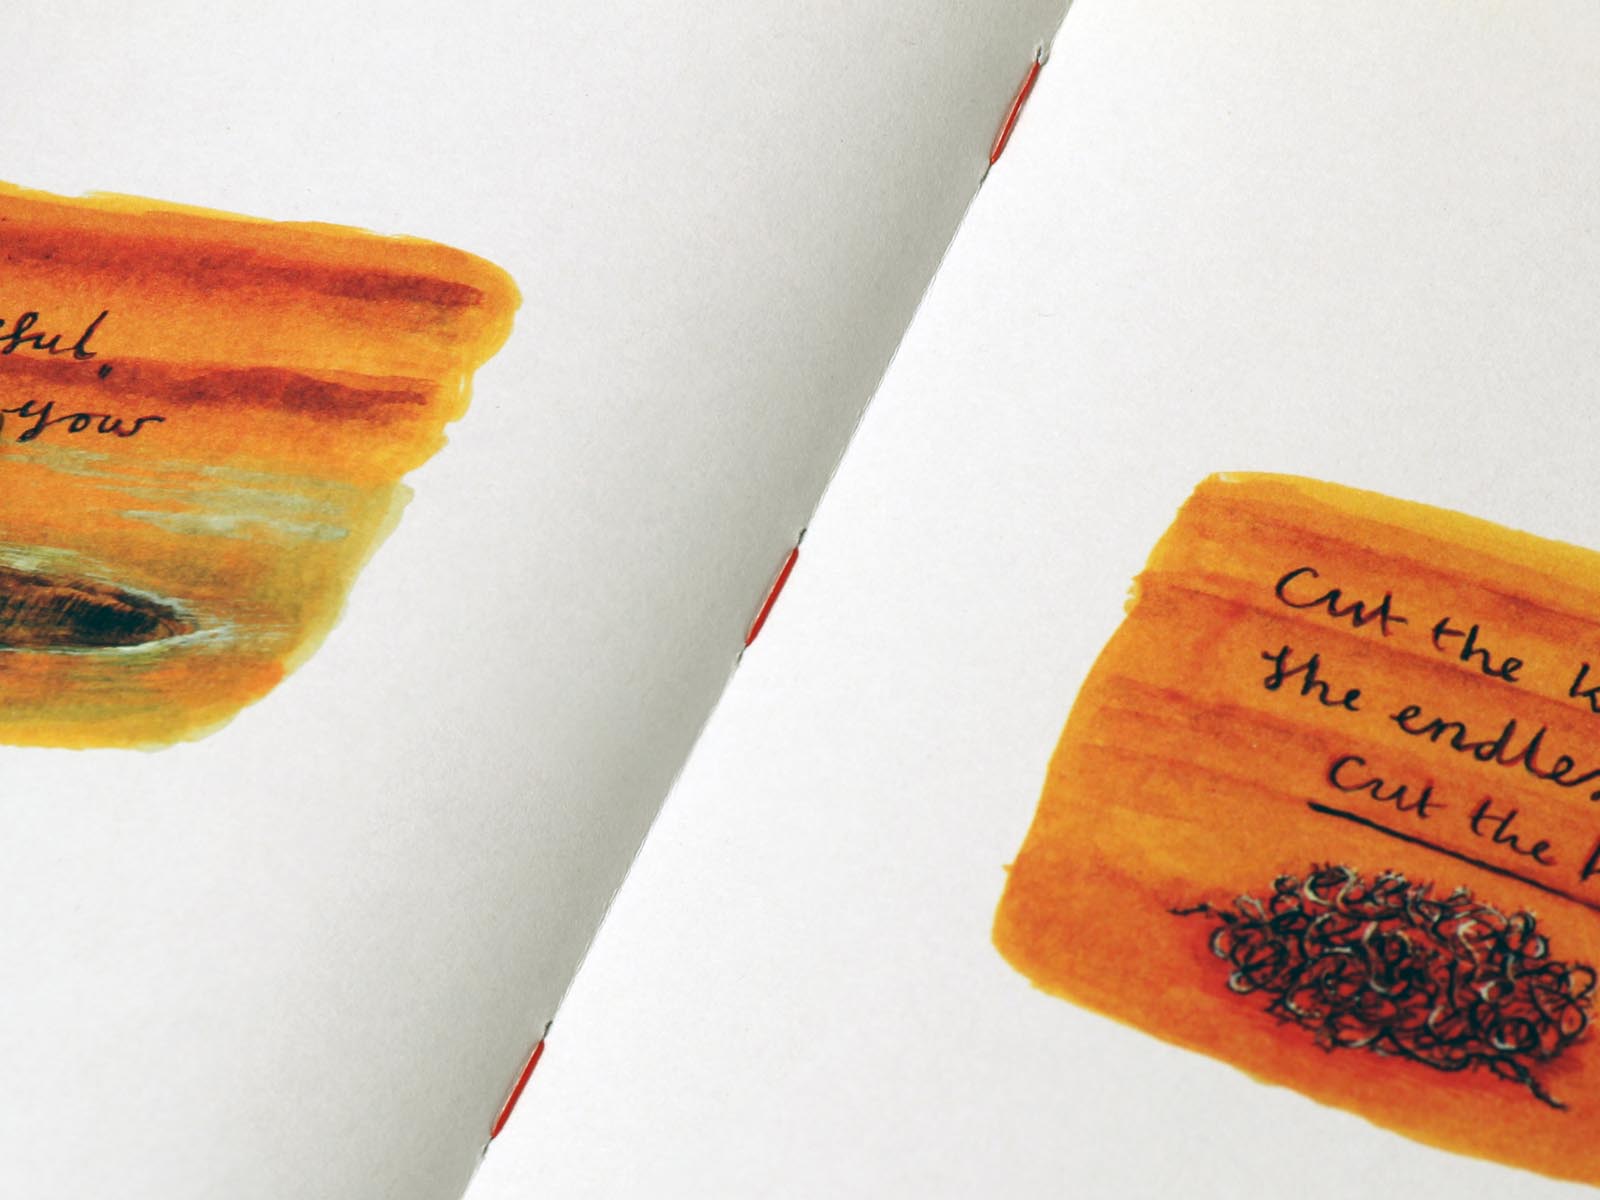 your
Cut the
The endles
Cut the